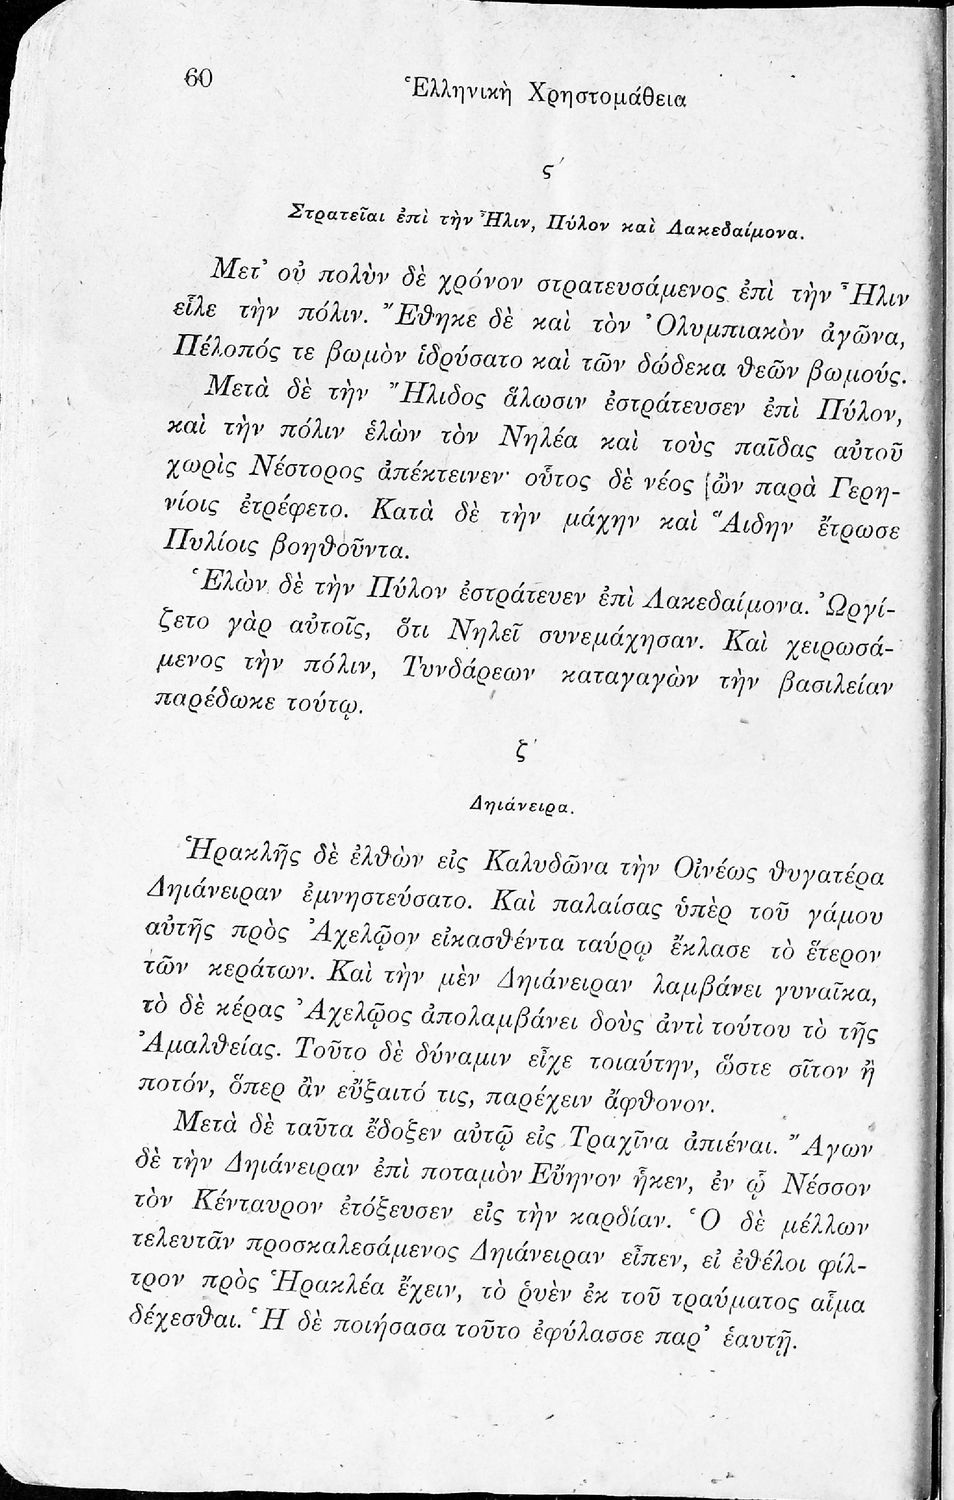 60
Ἑλληνικὴ Χρηστομάθεια
ϛ´
Στρατεῖαι ἐπὶ τὴν Ἦλιν, Πύλον καὶ Λακεδαίμονα.
Μετ᾽ οὐ πολὺν δὲ χρόνον στρατευσάμενος ἐπὶ τὴν Ἦλιν
εἷλε τὴν πόλιν. Ἔθηκε δὲ καὶ τὸν Ὀλυμπιακὸν ἀγῶνα,
Πέλοπός τε βωμὸν ἱδρύσατο καὶ τῶν δώδεκα θεῶν βωμούς.
Μετὰ δὲ τὴν Ἤλιδος ἅλωσιν ἐστράτευσεν ἐπὶ Πύλον,
καὶ τὴν πόλιν ἑλὼν τὸν Νηλέα καὶ τοὺς παῖδας αὐτοῦ
χωρὶς Νέστορος ἀπέκτεινεν· οὗτος δὲ νέος ὢν παρὰ Γερη-
νίοις ἐτρέφετο. Κατὰ δὲ τὴν μάχην καὶ Ἅιδην ἔτρωσε
Πυλίοις βοηθοῦντα.
Ἑλὼν δὲ τὴν Πύλον ἐστράτευεν ἐπὶ Λακεδαίμονα. Ὠργί-
ζετο γὰρ αὐτοῖς, ὅτι Νηλεῖ συνεμάχησαν. Καὶ χειρωσά-
μενος τὴν πόλιν, Τυνδάρεων καταγαγὼν τὴν βασιλείαν
παρέδωκε τούτῳ.
ζ´
Δηιάνειρα.
Ἡρακλῆς δὲ ἐλθὼν εἰς Καλυδῶνα τὴν Οἰνέως θυγατέρα
Δηιάνειραν ἐμνηστεύσατο. Καὶ παλαίσας ὑπὲρ τοῦ γάμου
αὐτῆς πρὸς Ἀχελῷον εἰκασθέντα ταύρῳ ἔκλασε τὸ ἕτερον
τῶν κεράτων. Καὶ τὴν μὲν Δηιάνειραν λαμβάνει γυναῖκα,
τὸ δὲ κέρας Ἀχελῷος ἀπολαμβάνει δοὺς ἀντὶ τούτου τὸ τῆς
Ἀμαλθείας. Τοῦτο δὲ δύναμιν εἶχε τοιαύτην, ὥστε σῖτον ἢ
ποτόν, ὅπερ ἂν εὔξαιτό τις, παρέχειν ἄφθονον.
Μετὰ δὲ ταῦτα ἔδοξεν αὐτῷ εἰς Τραχῖνα ἀπιέναι. Ἄγων
δὲ τὴν Δηιάνειραν ἐπὶ ποταμὸν Εὔηνον ἧκεν, ἐν ᾧ Νέσσον
τὸν Κένταυρον ἐτόξευσεν εἰς τὴν καρδίαν. Ὁ δὲ μέλλων
τελευτᾶν προσκαλεσάμενος Δηιάνειραν εἶπεν, εἰ ἐθέλοι φίλ-
τρον πρὸς Ἡρακλέα ἔχειν, τὸ ῥυὲν ἐκ τοῦ τραύματος αἷμα
δέχεσθαι. Ἡ δὲ ποιήσασα τοῦτο ἐφύλασσε παρ᾽ ἑαυτῇ.